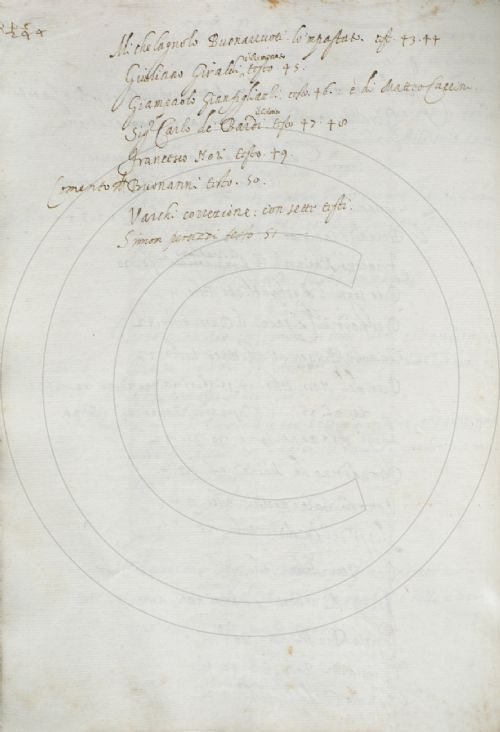 Michelagnolo Buonarruoti lo'mpastato. test. 43. 44
Giuliano Giraldi, testo 45.
Giampaolo Gianfigliazzi: testo. 46.: è di Matteo Caccin
Sig.r Carlo de' Bardi testo 47. 48
Francesco Nori testo. 49.
Comento Buonanni testo. 50.
Varchi correzione: con sette testi.
Simon peruzzi testo 51